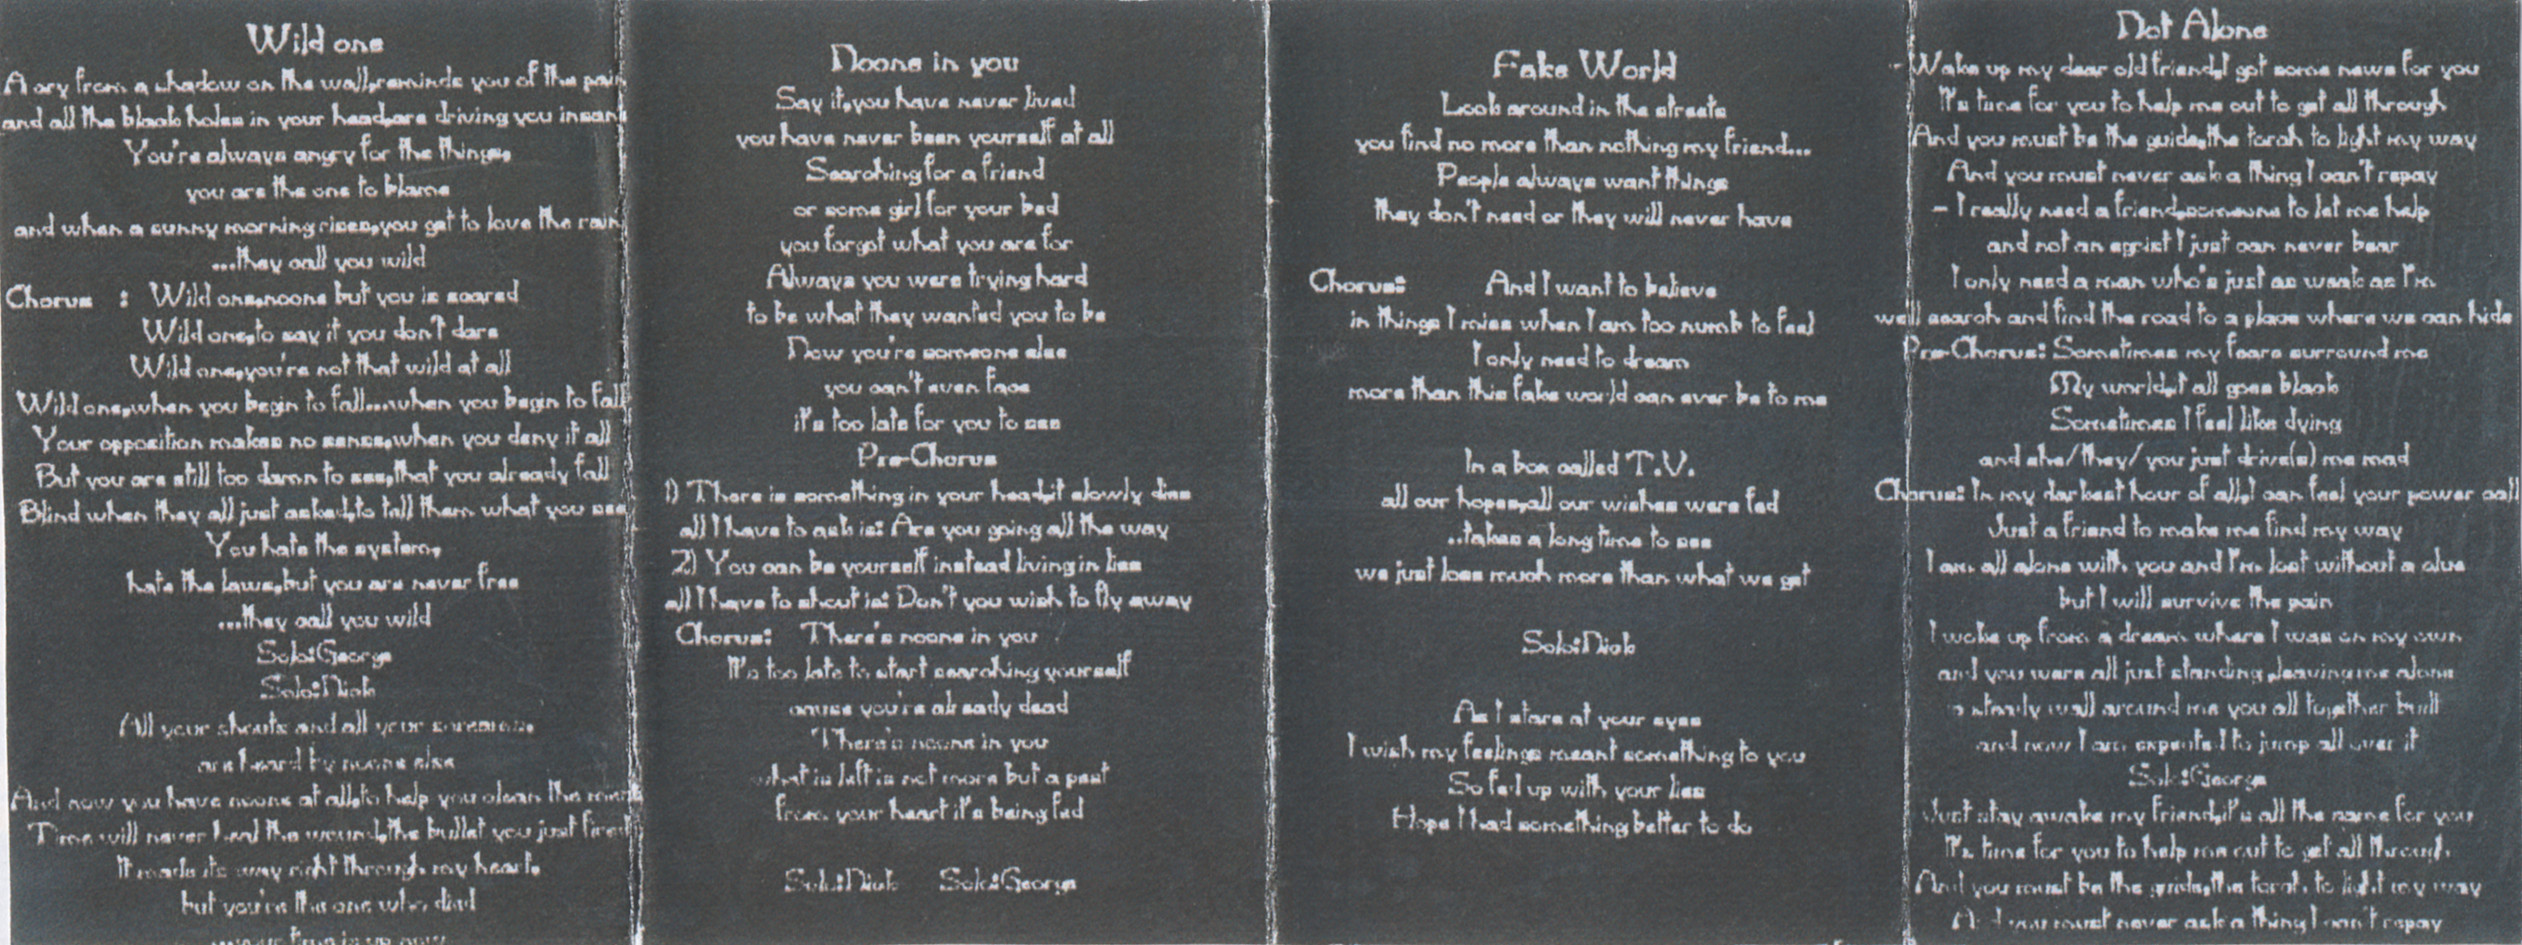 Wild one
A cry from a shadow on the wall,reminds you of the pain
and all the black holes in your head,are driving you insane
You're always angry for the things,
you are the one to blame
and when a sunny morning rises,you get to love the rain
...they call you wild
Chorus : Wild one,noone but you is scared
Wild one,to say it you don't dare
Wild one,you're not that wild at all
Wild one,when you begin to fall...when you begin to fall
Your opposition makes no sense,when you deny it all
But you are still too damn to see,that you already fall
Blind when they all just asked,to tell them what you see
You hate the system,
hate the laws,but you are never free
...they call you wild
Solo:George
Solo:Nick
All your shouts and all your screams,
are heard by noone else
And now you have noone at all,to help you clean the mess
Time will never heal the wound,the bullet you just fired
It made its way right through my heart,
but you're the one who died
...your time is up now
Noone in you
Say it,you have never lived
you have never been yourself at all
Searching for a friend
or some girl for your bed
you forgot what you are for
Always you were trying hard
to be what they wanted you to be
Now you're someone else
you can't even face
it's too late for you to see
Pre-Chorus
1) There is something in your head,it slowly dies
all I have to ask is: Are you going all the way
2) You can be yourself instead living in lies
all I have to shout is: Don't you wish to fly away
Chorus: There's noone in you
It's too late to start searching yourself
cause you're already dead
There's noone in you
what is left is not more but a past
from your heart it's being fed
Solo:Nick Solo:George
Fake World
Look around in the streets
you find no more than nothing my friend...
People always want things
they don't need or they will never have
Chorus: And I want to believe
in things I miss when I am too numb to feel
I only need to dream
more than this fake world can ever be to me
In a box called T.V.
all our hopes,all our wishes were fed
..takes a long time to see
we just lose much more than what we get
Solo:Nick
As I stare at your eyes
I wish my feelings meant something to you
So fed up with your lies
Hope I had something better to do
Not Alone
- Wake up my dear old friend,I got some news for you
It's time for you to help me out to get all through
And you must be the guide,the torch to light my way
And you must never ask a thing I can't repay
- I really need a friend,someone to let me help
and not an egoist I just can never bear
I only need a man who's just as weak as I'm
we'll search and find the road to a place where we can hide
Pre-Chorus: Sometimes my fears surround me
My world,it all goes black
Sometimes I feel like dying
and she/they/you just drive(s) me mad
Chorus: In my darkest hour of all,I can feel your power call
Just a friend to make me find my way
I am all alone with you and I'm lost without a clue
but I will survive the pain
I woke up from a dream where I was on my own
and you were all just standing ,leaving me alone
a steady wall around me you all together built
and now I am expected to jump all over it
Solo:George
Just stay awake my friend,it's all the same for you
It's time for you to help me out to get all through,
And you must be the guide,the torch to light my way
And you must never ask a thing I can't repay